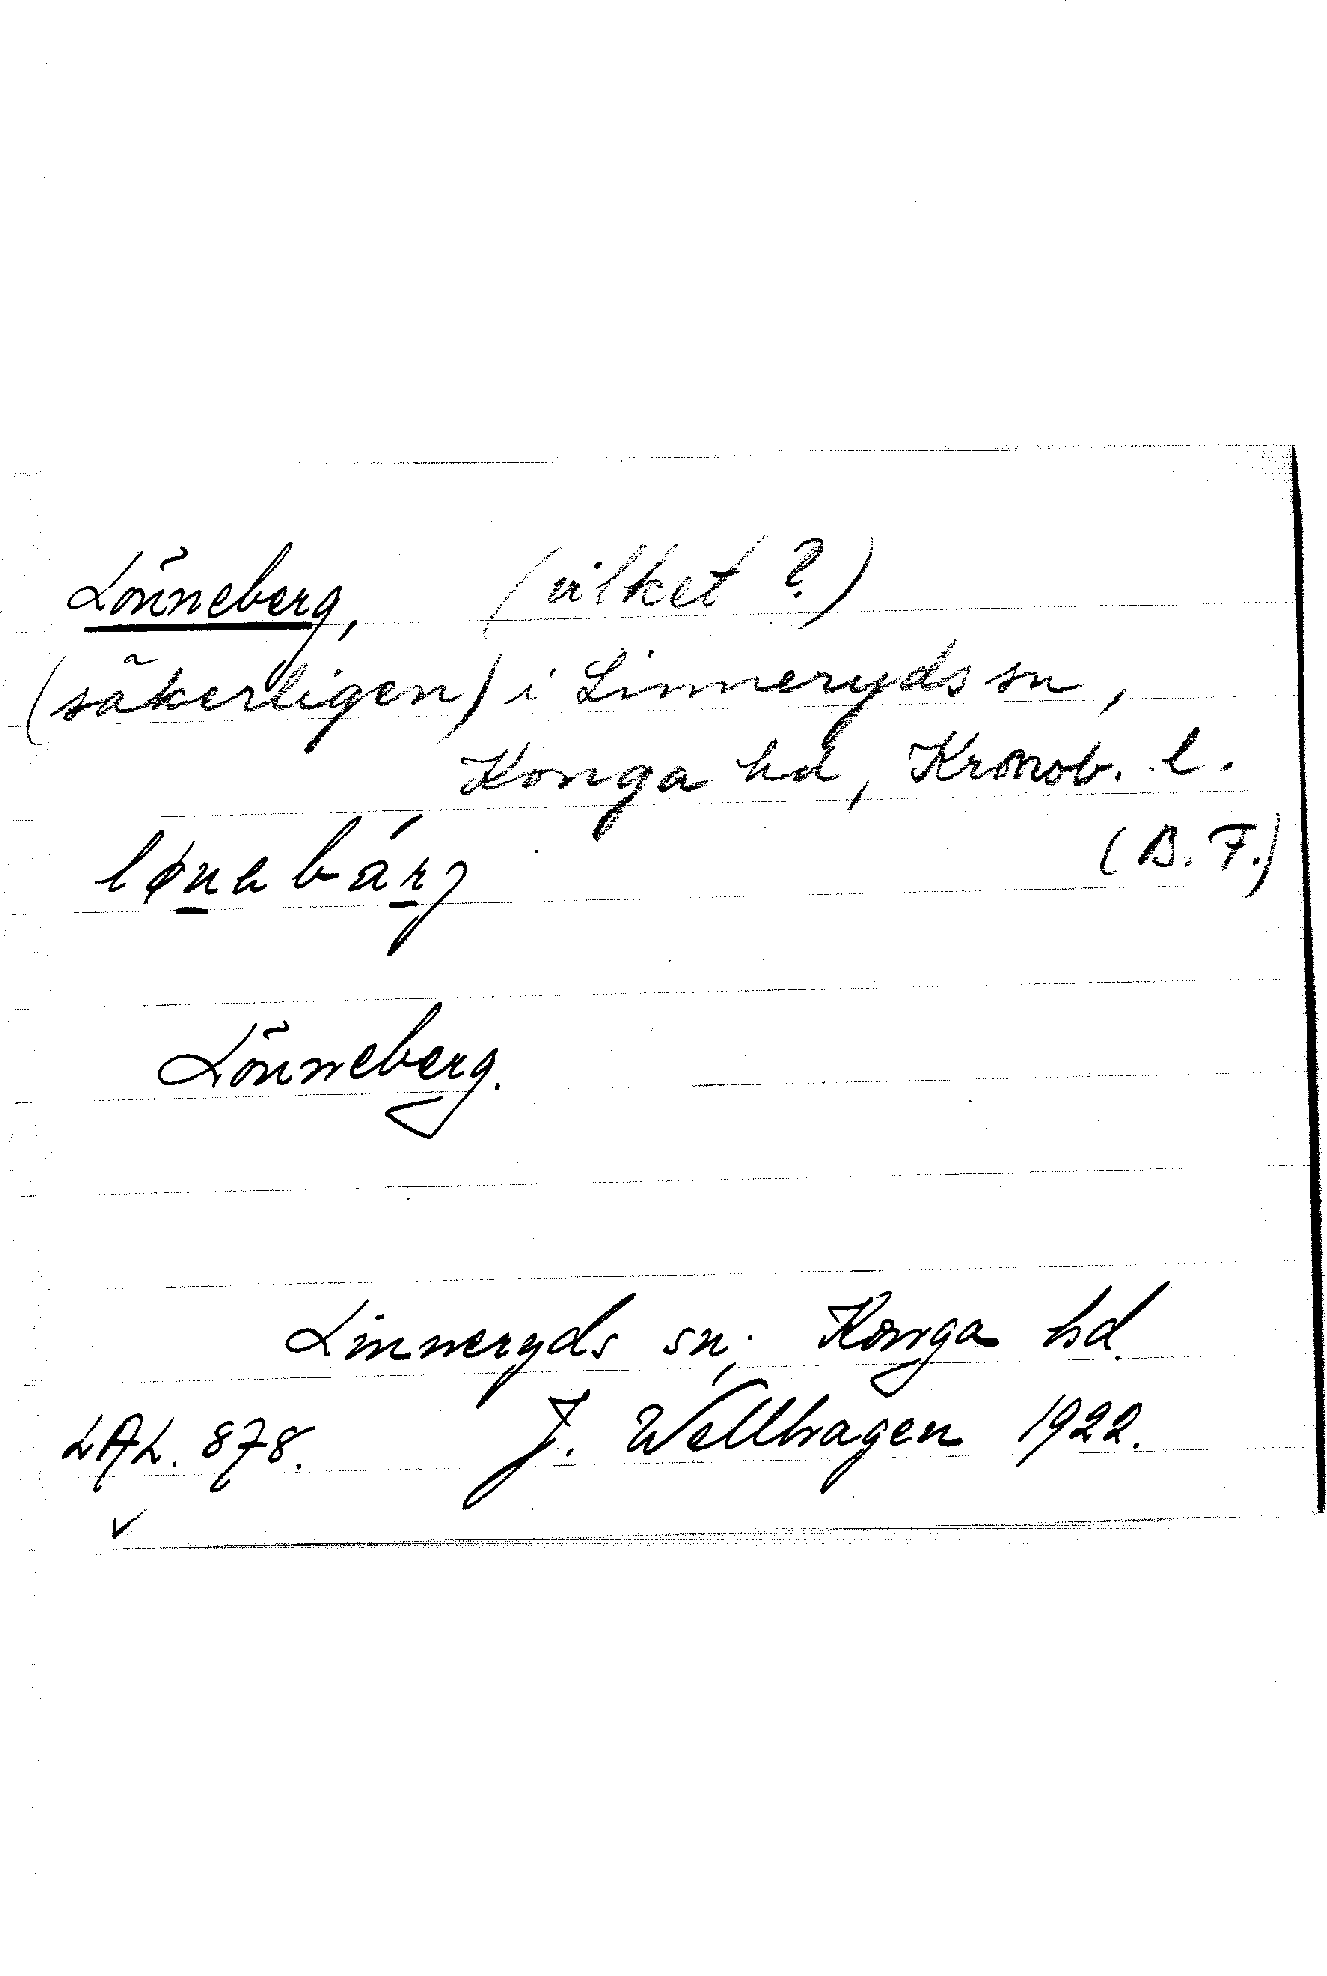 Lönneberg, (vilket ?)
(säkerligen) i Linneryds sn,
Konga hd, Kronob. l.
(B. F.)
lønabárȝ
Lönneberg.
Linneryds sn; Konga hd.
LAL. 878. J. Wellhagen 1922.